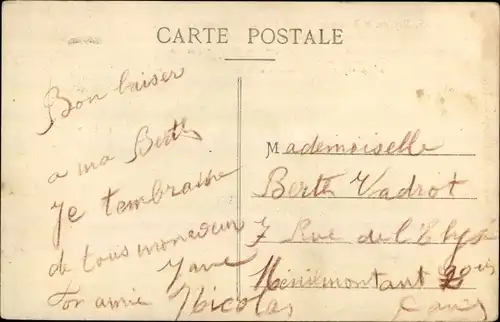 CARTE POSTALE
Bon baiser
a ma Berth
Je tembrasse
de tous moncoeur
Ton amie Nicolas
Mademoiselle
Berth Vadrot
7 Rue de l'Elys
Ménilmontant
Paris